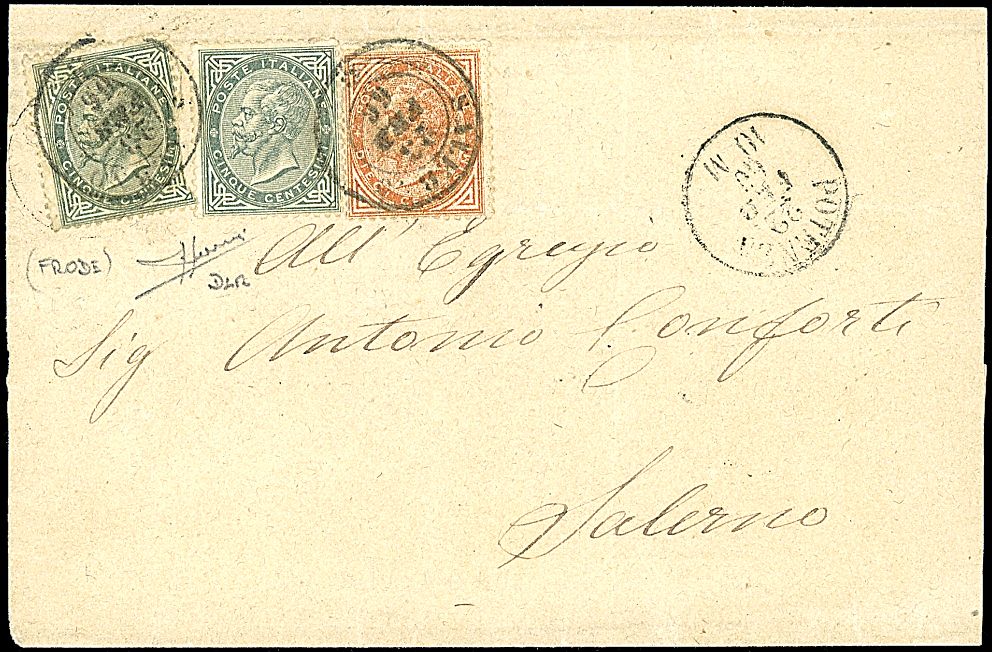 POSTE ITALIANE
CINQUE CENTESIMI
POSTE ITALIANE
CINQUE CENTESIMI
DIECI
POTENZA
22
10 M
(FRODE)
DLR
All' Egregio
Sig Antonio Conforti
Salerno